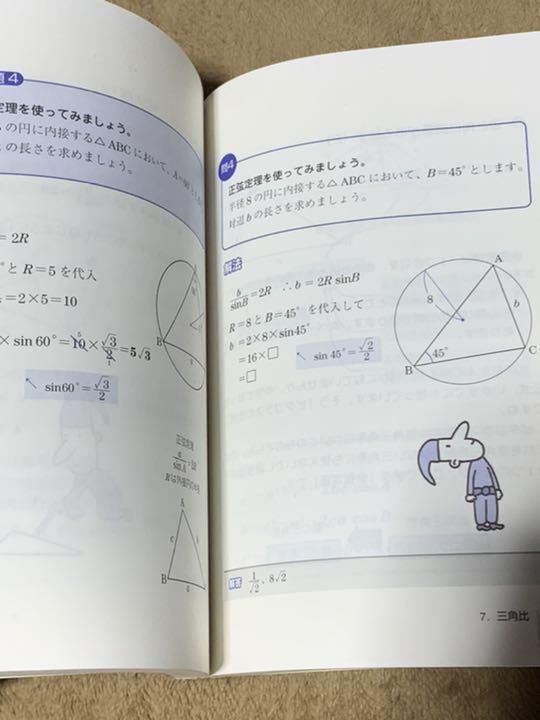 題4
定理を使ってみましょう。
の円に内接する△ABCにおいて、
の長さを求めましょう。
=2R
°とR=5を代入
=2×5=10
× sin 60°=10×√3/2=5√3
5
1
sin60°=√3/2
正弦定理
a/sinA=2R
Rは外接円の半径
A
c
B
a
B
問4
正弦定理を使ってみましょう。
半径8の円に内接する△ABCにおいて、B=45°とします。
対辺bの長さを求めましょう。
解法
b/sinB=2R ∴b=2R sinB
R=8とB=45°を代入して
b=2×8×sin45°
=16×□
sin 45°=√2/2
=□
A
8
b
45°
B
C
解答 1/√2、8√2
7. 三角比